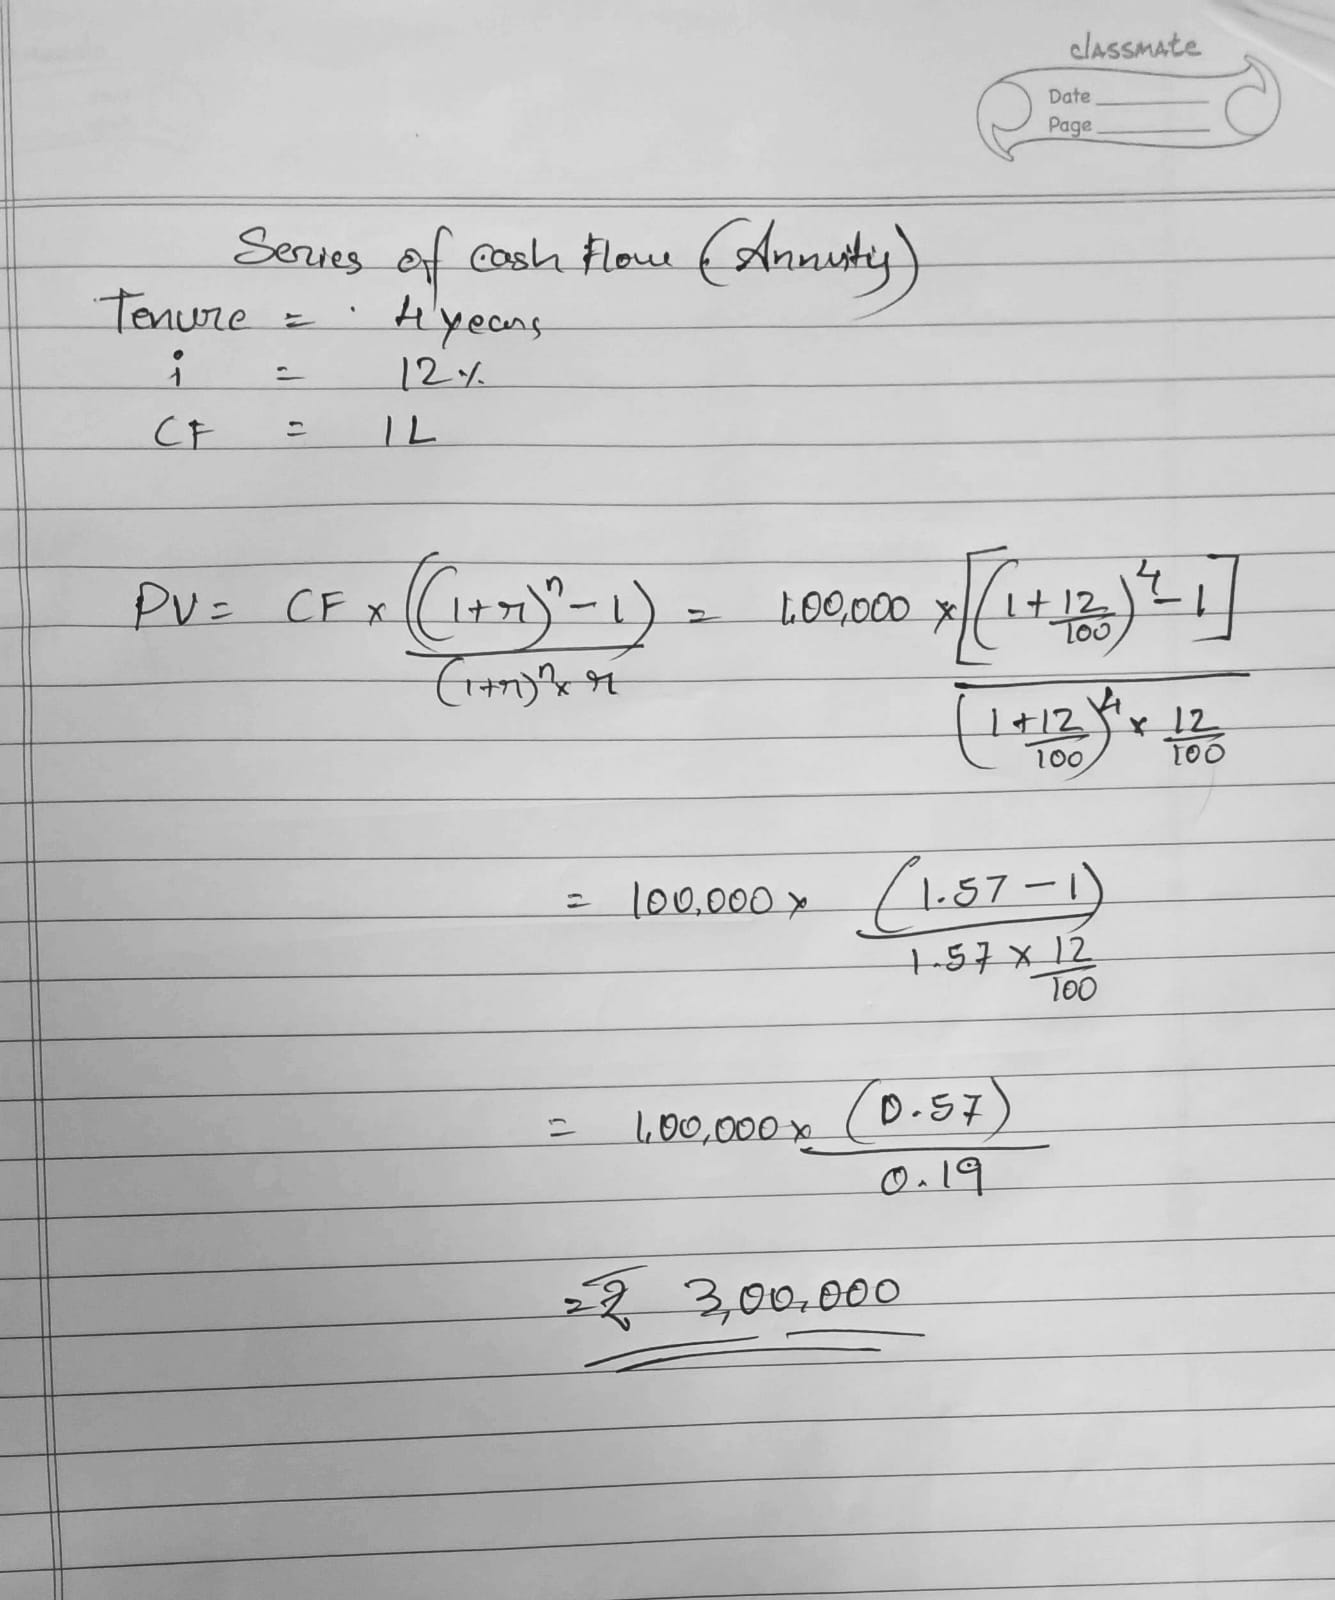 classmate
Date
Page
Series of cash flow (Annuity)
Tenure = 4 years
i = 12%
CF = 1L
PV = CF x ((1+r)^n - 1) / (1+r)^n x r = 1,00,000 x [(1 + 12/100)^4 - 1] / (1 + 12/100)^4 x 12/100
= 100,000 x (1.57 - 1) / 1.57 x 12/100
= 1,00,000 x (0.57) / 0.19
= ₹ 3,00,000